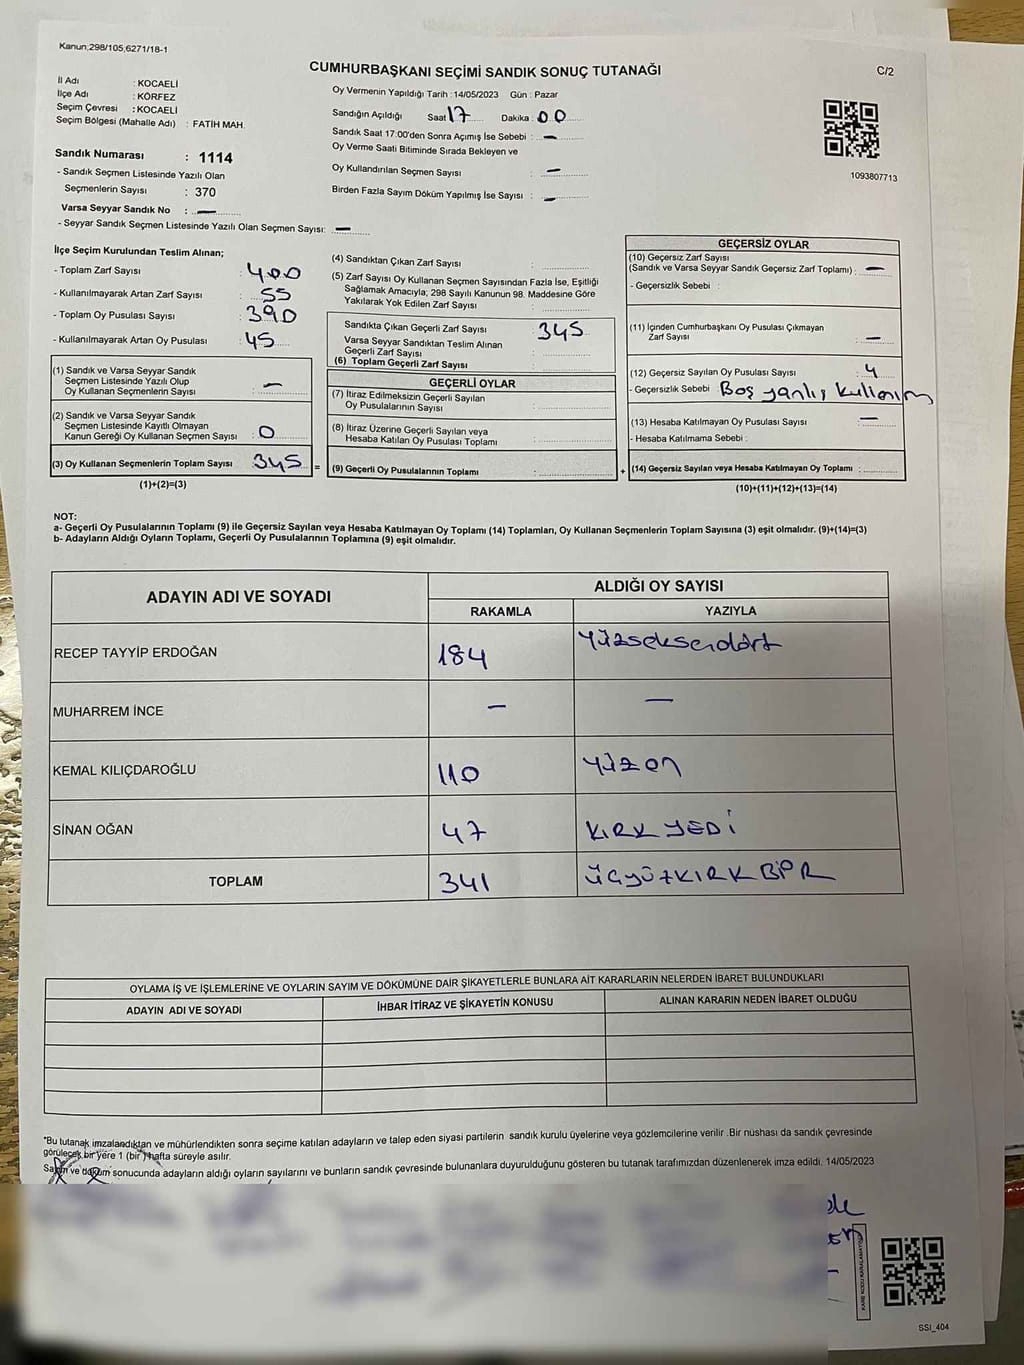 Kanun;298/105,6271/18-1
CUMHURBAŞKANI SEÇİMİ SANDIK SONUÇ TUTANAĞI
C/2
İl Adı : KOCAELİ
İlçe Adı : KÖRFEZ
Seçim Çevresi : KOCAELİ
Seçim Bölgesi (Mahalle Adı) : FATİH MAH.
Sandık Numarası : 1114
- Sandık Seçmen Listesinde Yazılı Olan
Seçmenlerin Sayısı : 370
Varsa Seyyar Sandık No : —
- Seyyar Sandık Seçmen Listesinde Yazılı Olan Seçmen Sayısı: —
Oy Vermenin Yapıldığı Tarih : 14/05/2023 Gün : Pazar
Sandığın Açıldığı Saat 17 Dakika : 00
Sandık Saat 17:00'den Sonra Açımış İse Sebebi : —
Oy Verme Saati Bitiminde Sırada Bekleyen ve
Oy Kullandırılan Seçmen Sayısı : —
Birden Fazla Sayım Döküm Yapılmış İse Sayısı : —
1093807713
İlçe Seçim Kurulundan Teslim Alınan;
- Toplam Zarf Sayısı : 400
- Kullanılmayarak Artan Zarf Sayısı : 55
- Toplam Oy Pusulası Sayısı : 390
- Kullanılmayarak Artan Oy Pusulası : 45
(1) Sandık ve Varsa Seyyar Sandık
Seçmen Listesinde Yazılı Olup
Oy Kullanan Seçmenlerin Sayısı : —
(2) Sandık ve Varsa Seyyar Sandık
Seçmen Listesinde Kayıtlı Olmayan
Kanun Gereği Oy Kullanan Seçmen Sayısı : 0
(3) Oy Kullanan Seçmenlerin Toplam Sayısı : 345 =
(1)+(2)=(3)
(4) Sandıktan Çıkan Zarf Sayısı :
(5) Zarf Sayısı Oy Kullanan Seçmen Sayısından Fazla İse, Eşitliği
Sağlamak Amacıyla; 298 Sayılı Kanunun 98. Maddesine Göre
Yakılarak Yok Edilen Zarf Sayısı :
Sandıkta Çıkan Geçerli Zarf Sayısı : 345
Varsa Seyyar Sandıktan Teslim Alınan
Geçerli Zarf Sayısı :
(6) Toplam Geçerli Zarf Sayısı :
GEÇERLİ OYLAR
(7) İtiraz Edilmeksizin Geçerli Sayılan
Oy Pusulalarının Sayısı :
(8) İtiraz Üzerine Geçerli Sayılan veya
Hesaba Katılan Oy Pusulası Toplamı :
(9) Geçerli Oy Pusulalarının Toplamı : +
GEÇERSİZ OYLAR
(10) Geçersiz Zarf Sayısı
(Sandık ve Varsa Seyyar Sandık Geçersiz Zarf Toplamı) : —
- Geçersizlik Sebebi :
(11) İçinden Cumhurbaşkanı Oy Pusulası Çıkmayan
Zarf Sayısı : —
(12) Geçersiz Sayılan Oy Pusulası Sayısı : 4
- Geçersizlik Sebebi : Boş yanlış kullanım
(13) Hesaba Katılmayan Oy Pusulası Sayısı : —
- Hesaba Katılmama Sebebi :
(14) Geçersiz Sayılan veya Hesaba Katılmayan Oy Toplamı :
(10)+(11)+(12)+(13)=(14)
NOT:
a- Geçerli Oy Pusulalarının Toplamı (9) ile Geçersiz Sayılan veya Hesaba Katılmayan Oy Toplamı (14) Toplamları, Oy Kullanan Seçmenlerin Toplam Sayısına (3) eşit olmalıdır. (9)+(14)=(3)
b- Adayların Aldığı Oyların Toplamı, Geçerli Oy Pusulalarının Toplamına (9) eşit olmalıdır.
ADAYIN ADI VE SOYADI
ALDIĞI OY SAYISI
RAKAMLA YAZIYLA
RECEP TAYYİP ERDOĞAN 184 Yüzseksendört
MUHARREM İNCE — —
KEMAL KILIÇDAROĞLU 110 Yüzon
SİNAN OĞAN 47 KIRK YEDİ
TOPLAM 341 ÜçyüzKIRK BİR
OYLAMA İŞ VE İŞLEMLERİNE VE OYLARIN SAYIM VE DÖKÜMÜNE DAİR ŞİKAYETLERLE BUNLARA AİT KARARLARIN NELERDEN İBARET BULUNDUKLARI
ADAYIN ADI VE SOYADI İHBAR İTİRAZ VE ŞİKAYETİN KONUSU ALINAN KARARIN NEDEN İBARET OLDUĞU
*Bu tutanak imzalandıktan ve mühürlendikten sonra seçime katılan adayların ve talep eden siyasi partilerin sandık kurulu üyelerine veya gözlemcilerine verilir .Bir nüshası da sandık çevresinde
görülecek bir yere 1 (bir ) hafta süreyle asılır.
Sayım ve döküm sonucunda adayların aldığı oyların sayılarını ve bunların sandık çevresinde bulunanlara duyurulduğunu gösteren bu tutanak tarafımızdan düzenlenerek imza edildi. 14/05/2023
SSI_404